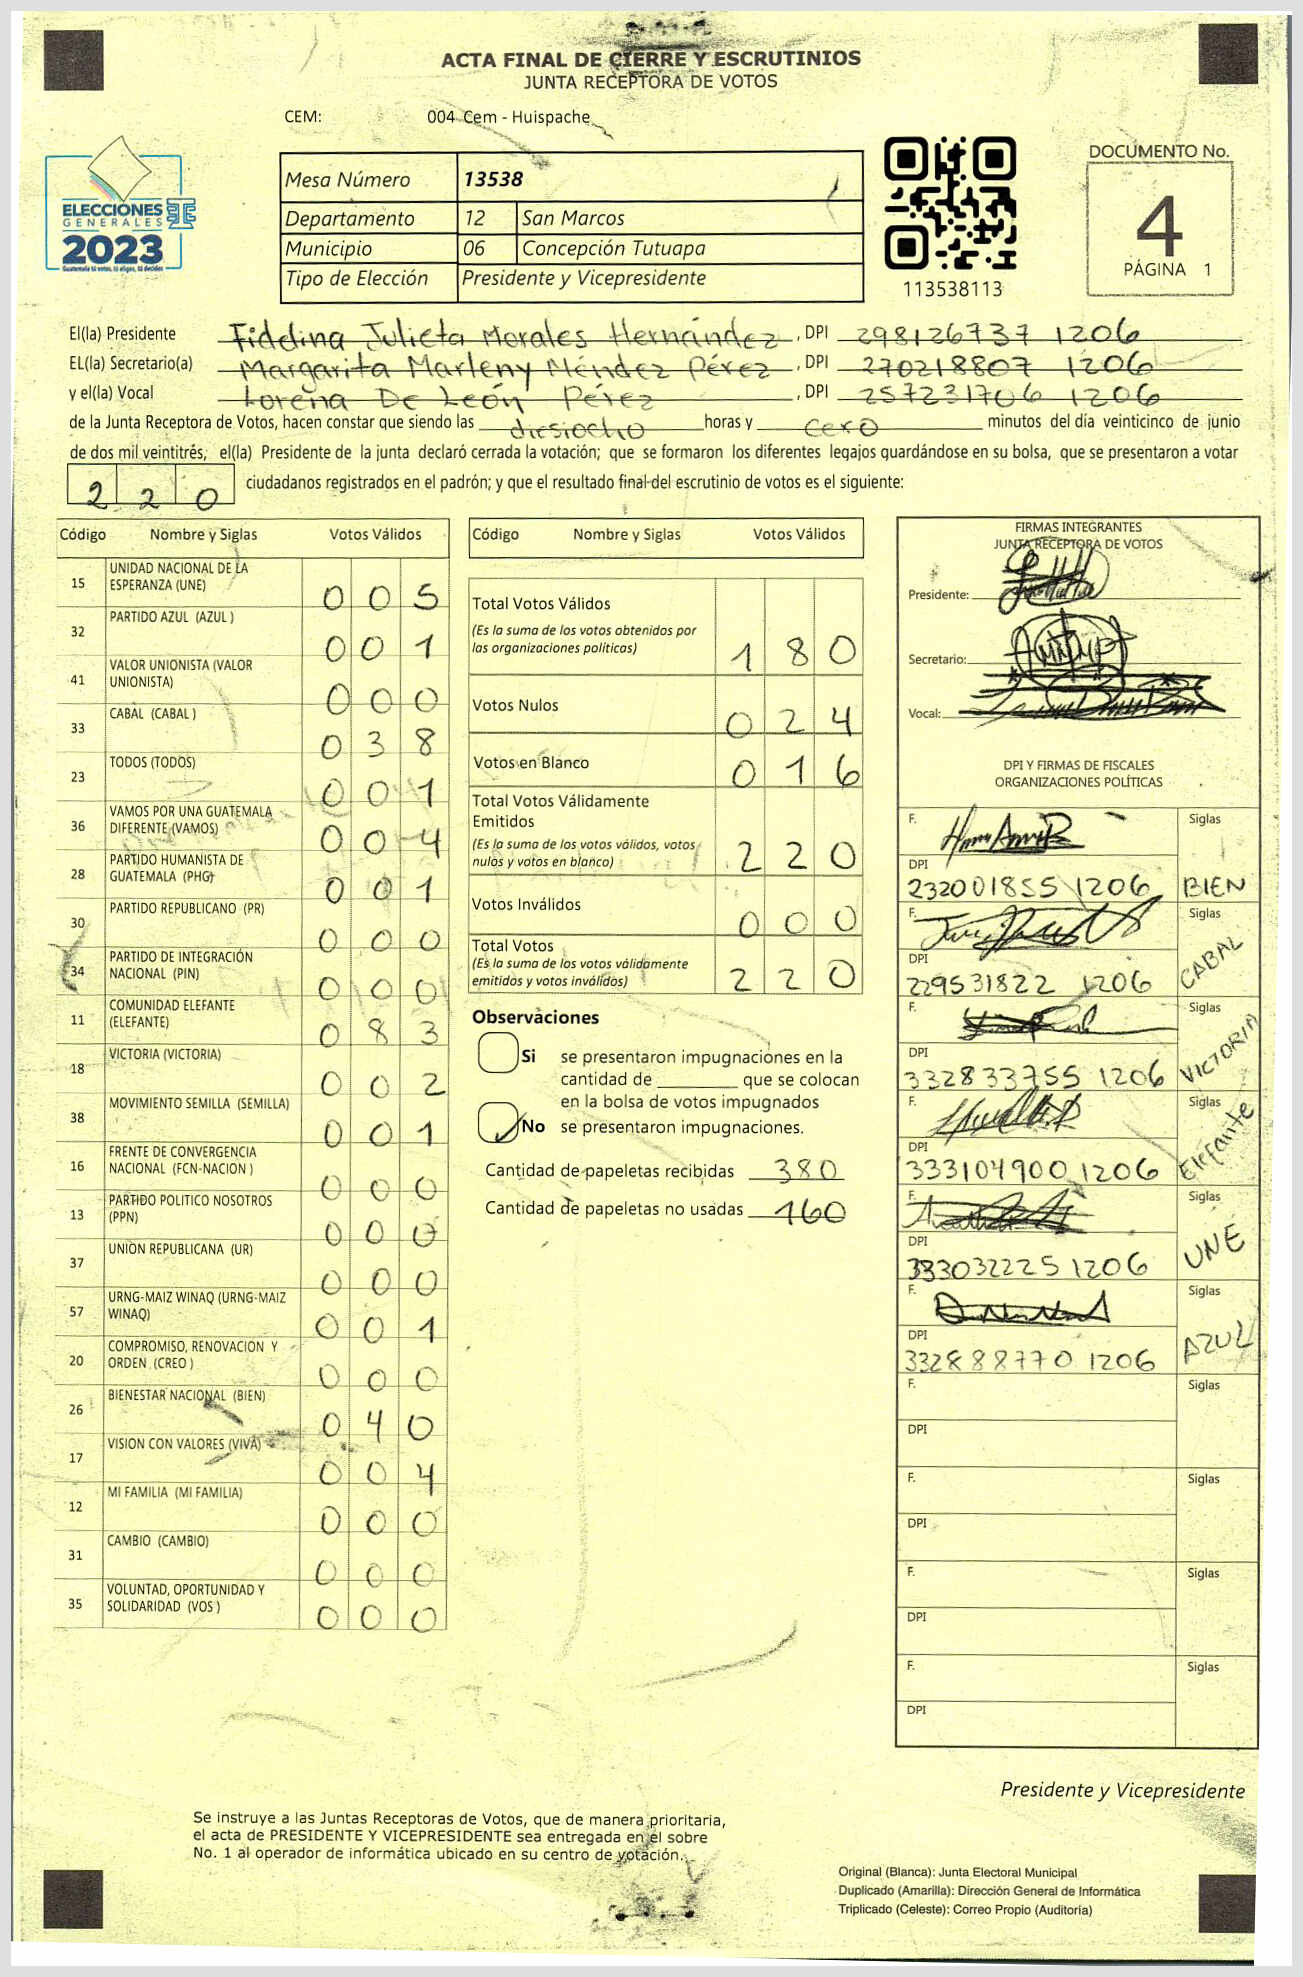 ACTA FINAL DE CIERRE Y ESCRUTINIOS
JUNTA RECEPTORA DE VOTOS
CEM: 004 Cem - Huispache
ELECCIONES
GENERALES
2023
Guatemala tú votas, tú eliges, tú decides
Mesa Número 13538
Departamento 12 San Marcos
Municipio 06 Concepción Tutuapa
Tipo de Elección Presidente y Vicepresidente
113538113
DOCUMENTO No.
4
PÁGINA 1
El(la) Presidente Fidelina Julieta Morales Hernández, DPI 298126737 1206
EL(la) Secretario(a) Margarita Marleny Méndez Pérez, DPI 270218807 1206
y el(la) Vocal Lorena De León Pérez, DPI 257231706 1206
de la Junta Receptora de Votos, hacen constar que siendo las diesiocho horas y cero minutos del día veinticinco de junio
de dos mil veintitrés, el(la) Presidente de la junta declaró cerrada la votación; que se formaron los diferentes legajos guardándose en su bolsa, que se presentaron a votar
220 ciudadanos registrados en el padrón; y que el resultado final del escrutinio de votos es el siguiente:
Código Nombre y Siglas Votos Válidos
15 UNIDAD NACIONAL DE LA
ESPERANZA (UNE) 0 0 5
32 PARTIDO AZUL (AZUL ) 0 0 1
41 VALOR UNIONISTA (VALOR
UNIONISTA) 0 0 0
33 CABAL (CABAL ) 0 3 8
23 TODOS (TODOS) 0 0 1
36 VAMOS POR UNA GUATEMALA
DIFERENTE (VAMOS) 0 0 4
28 PARTIDO HUMANISTA DE
GUATEMALA (PHG) 0 0 1
30 PARTIDO REPUBLICANO (PR) 0 0 0
34 PARTIDO DE INTEGRACIÓN
NACIONAL (PIN) 0 0 0
11 COMUNIDAD ELEFANTE
(ELEFANTE) 0 8 3
18 VICTORIA (VICTORIA) 0 0 2
38 MOVIMIENTO SEMILLA (SEMILLA) 0 0 1
16 FRENTE DE CONVERGENCIA
NACIONAL (FCN-NACION ) 0 0 0
13 PARTIDO POLITICO NOSOTROS
(PPN) 0 0 0
37 UNION REPUBLICANA (UR) 0 0 0
57 URNG-MAIZ WINAQ (URNG-MAIZ
WINAQ) 0 0 1
20 COMPROMISO, RENOVACION Y
ORDEN (CREO ) 0 0 0
26 BIENESTAR NACIONAL (BIEN) 0 4 0
17 VISION CON VALORES (VIVA) 0 0 4
12 MI FAMILIA (MI FAMILIA) 0 0 0
31 CAMBIO (CAMBIO) 0 0 0
35 VOLUNTAD, OPORTUNIDAD Y
SOLIDARIDAD (VOS ) 0 0 0
Código Nombre y Siglas Votos Válidos
Total Votos Válidos
(Es la suma de los votos obtenidos por
las organizaciones políticas) 1 8 0
Votos Nulos 0 2 4
Votos en Blanco 0 1 6
Total Votos Válidamente
Emitidos
(Es la suma de los votos válidos, votos
nulos y votos en blanco) 2 2 0
Votos Inválidos 0 0 0
Total Votos
(Es la suma de los votos válidamente
emitidos y votos inválidos) 2 2 0
Observaciones
Si se presentaron impugnaciones en la
cantidad de ________ que se colocan
en la bolsa de votos impugnados
No se presentaron impugnaciones.
Cantidad de papeletas recibidas 380
Cantidad de papeletas no usadas 160
FIRMAS INTEGRANTES
JUNTA RECEPTORA DE VOTOS
Presidente:
Secretario:
Vocal:
DPI Y FIRMAS DE FISCALES
ORGANIZACIONES POLÍTICAS
F. Siglas
DPI
232001855 1206 BIEN
F. Siglas
DPI
229531822 1206 CABAL
F. Siglas
DPI
332833755 1206 VICTORIA
F. Siglas
DPI
333104900 1206 Elefante
F. Siglas
DPI
333032225 1206 UNE
F. Siglas
DPI
332888770 1206 AZUL
F. Siglas
DPI
F. Siglas
DPI
F. Siglas
DPI
F. Siglas
DPI
Presidente y Vicepresidente
Se instruye a las Juntas Receptoras de Votos, que de manera prioritaria,
el acta de PRESIDENTE Y VICEPRESIDENTE sea entregada en el sobre
No. 1 al operador de informática ubicado en su centro de votación.
Original (Blanca): Junta Electoral Municipal
Duplicado (Amarilla): Dirección General de Informática
Triplicado (Celeste): Correo Propio (Auditoría)